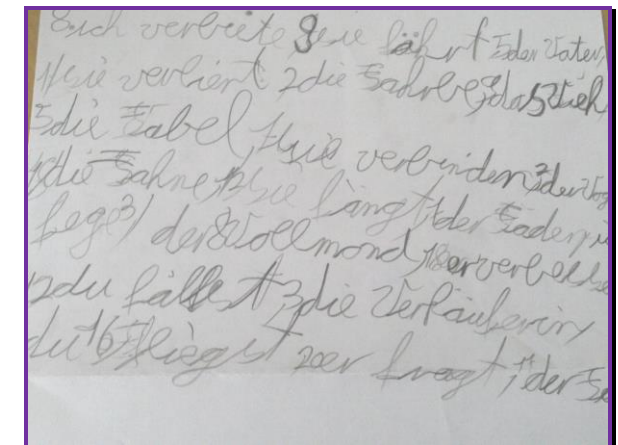 8.ich verbiete, 9sie fährt 5der Vater,
11sie verliert, 2die Fahrbe, das Vieh
5die Fabel, 11sie verbinden, 3der
die Fahne, 12sie fängt 1der Faden,
fege 3) der 8Vollmond, 18er
12du fällst, 3die Verkäuferin,
du 16fliegst 20er fragt, der